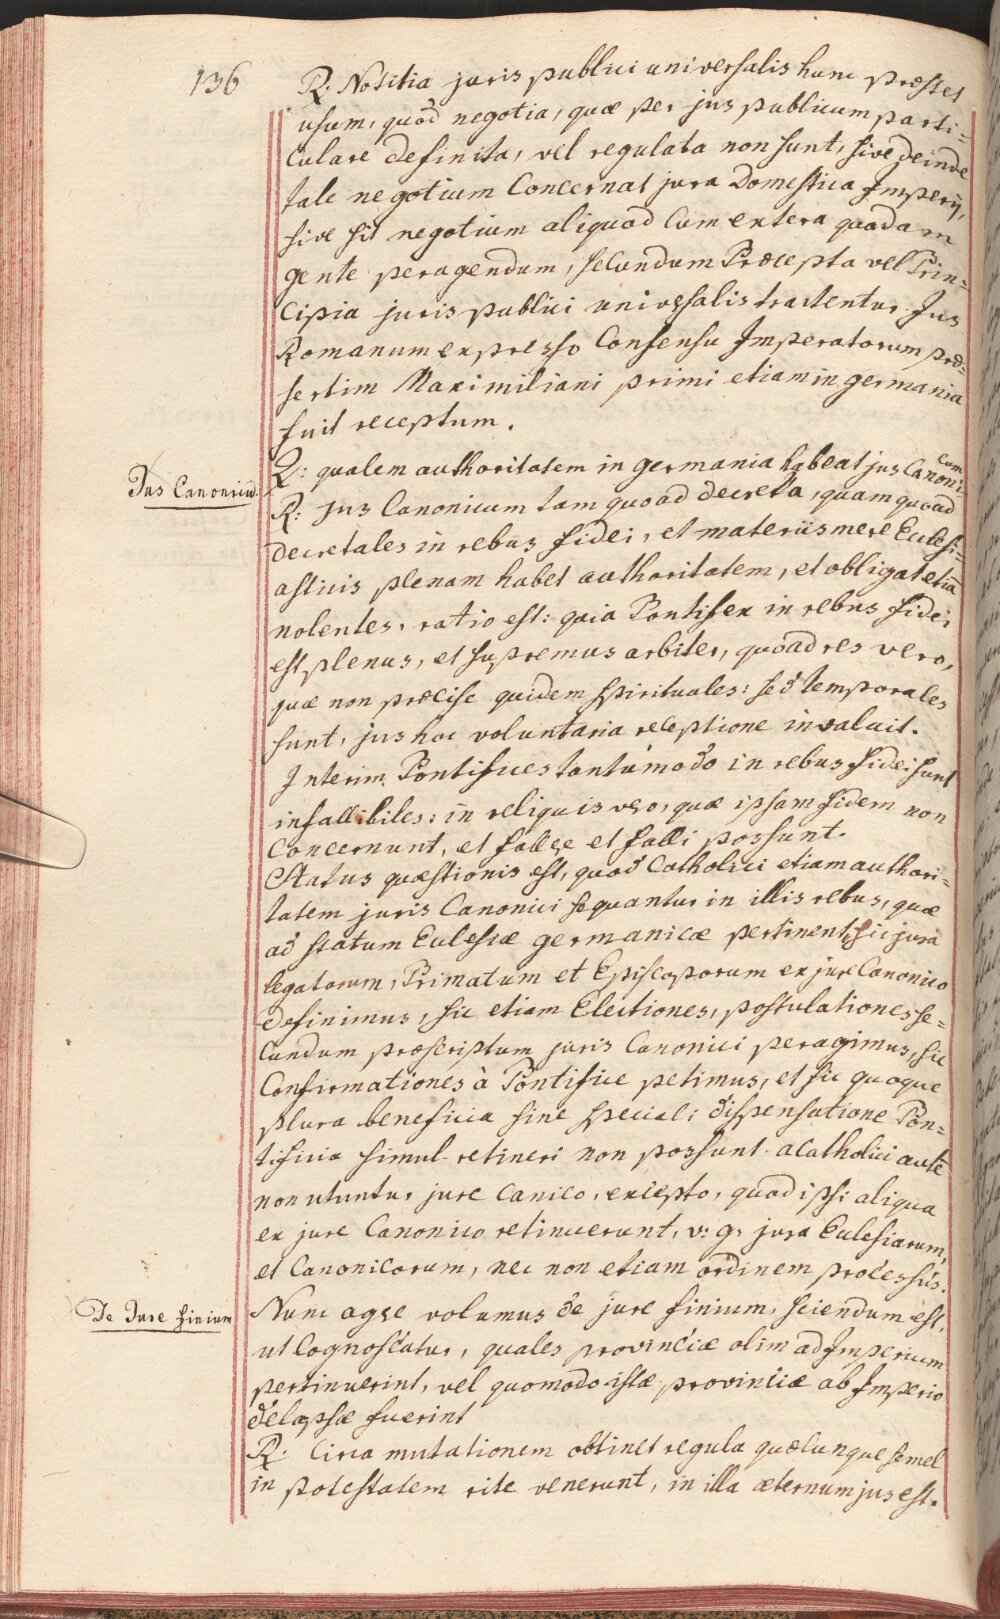 136
R: Notitia juris publici universalis hunc præstet
usum, quod negotia, quæ per jus publicum parti=
culare definita, vel regulata non sunt, sive deinde
tale negotium Concernat jura Domestica Imperij,
sive sit negotium aliquod Cum extera quadam
gente peragendum, secundum Præcepta vel Prin=
Cipia juris publici universalis tractentur. Jus
Romanum expresso Consensu Imperatorum præ=
sertim Maximiliani primi etiam in germania
fuit receptum.
Q: qualem authoritatem in germania habeat jus Canoni-
cum
Jus Canonicum.
R: Jus Canonicum tam quoad decreta, quam quoad
decretales in rebus fidei, et materiis mere Ecclesi=
asticis plenam habet authoritatem, et obligat etiā
nolentes, ratio est: quia Pontifex in rebus fidei
est plenus, et supremus arbiter, quoad res vero,
quæ non præcise quidem spirituales: sed temporales
sunt, jus hoc voluntaria receptione invaluit.
Interim Pontifices tantúmodo in rebus fidei sunt
infallibiles: in reliquis vero, quæ ipsam fidem non
Concernunt, et fallere et falli possunt.
Status quæstionis est, quod Catholici etiam authori=
tatem juris Canonici sequantur in illis rebus, quæ
ad statum Eclesiæ germanicæ pertinent, sic jura
legatorum, Primatum et Episcoporum ex jure Canonico
definimus, sic etiam Electiones, postulationes se=
Cundum præscriptum juris Canonici peragimus, sic
Confirmationes à Pontifice petimus, et sic quoque
plura beneficia sine speciali dispensatione Pon=
tificia simul retineri non possunt. acatholici autē
non utuntur jure canico, excepto, quod ipsi aliqua
ex jure Canonico retinuerunt, v: g: jura Eclesiarum,
et Canonicorum, nec non etiam ordinem procéssús.
De Jure finium
Nunc agere volumus de jure finium, sciendum est,
ut Cognoscatur, quales provinciæ olim ad Imperium
pertinuerint, vel quomodo istæ provinciæ ab Imperio
delapsæ fuerint
R: Circa mutationem obtinet regula quæcunque semel
in potestatem rite venerunt, in illa æternum jus est.